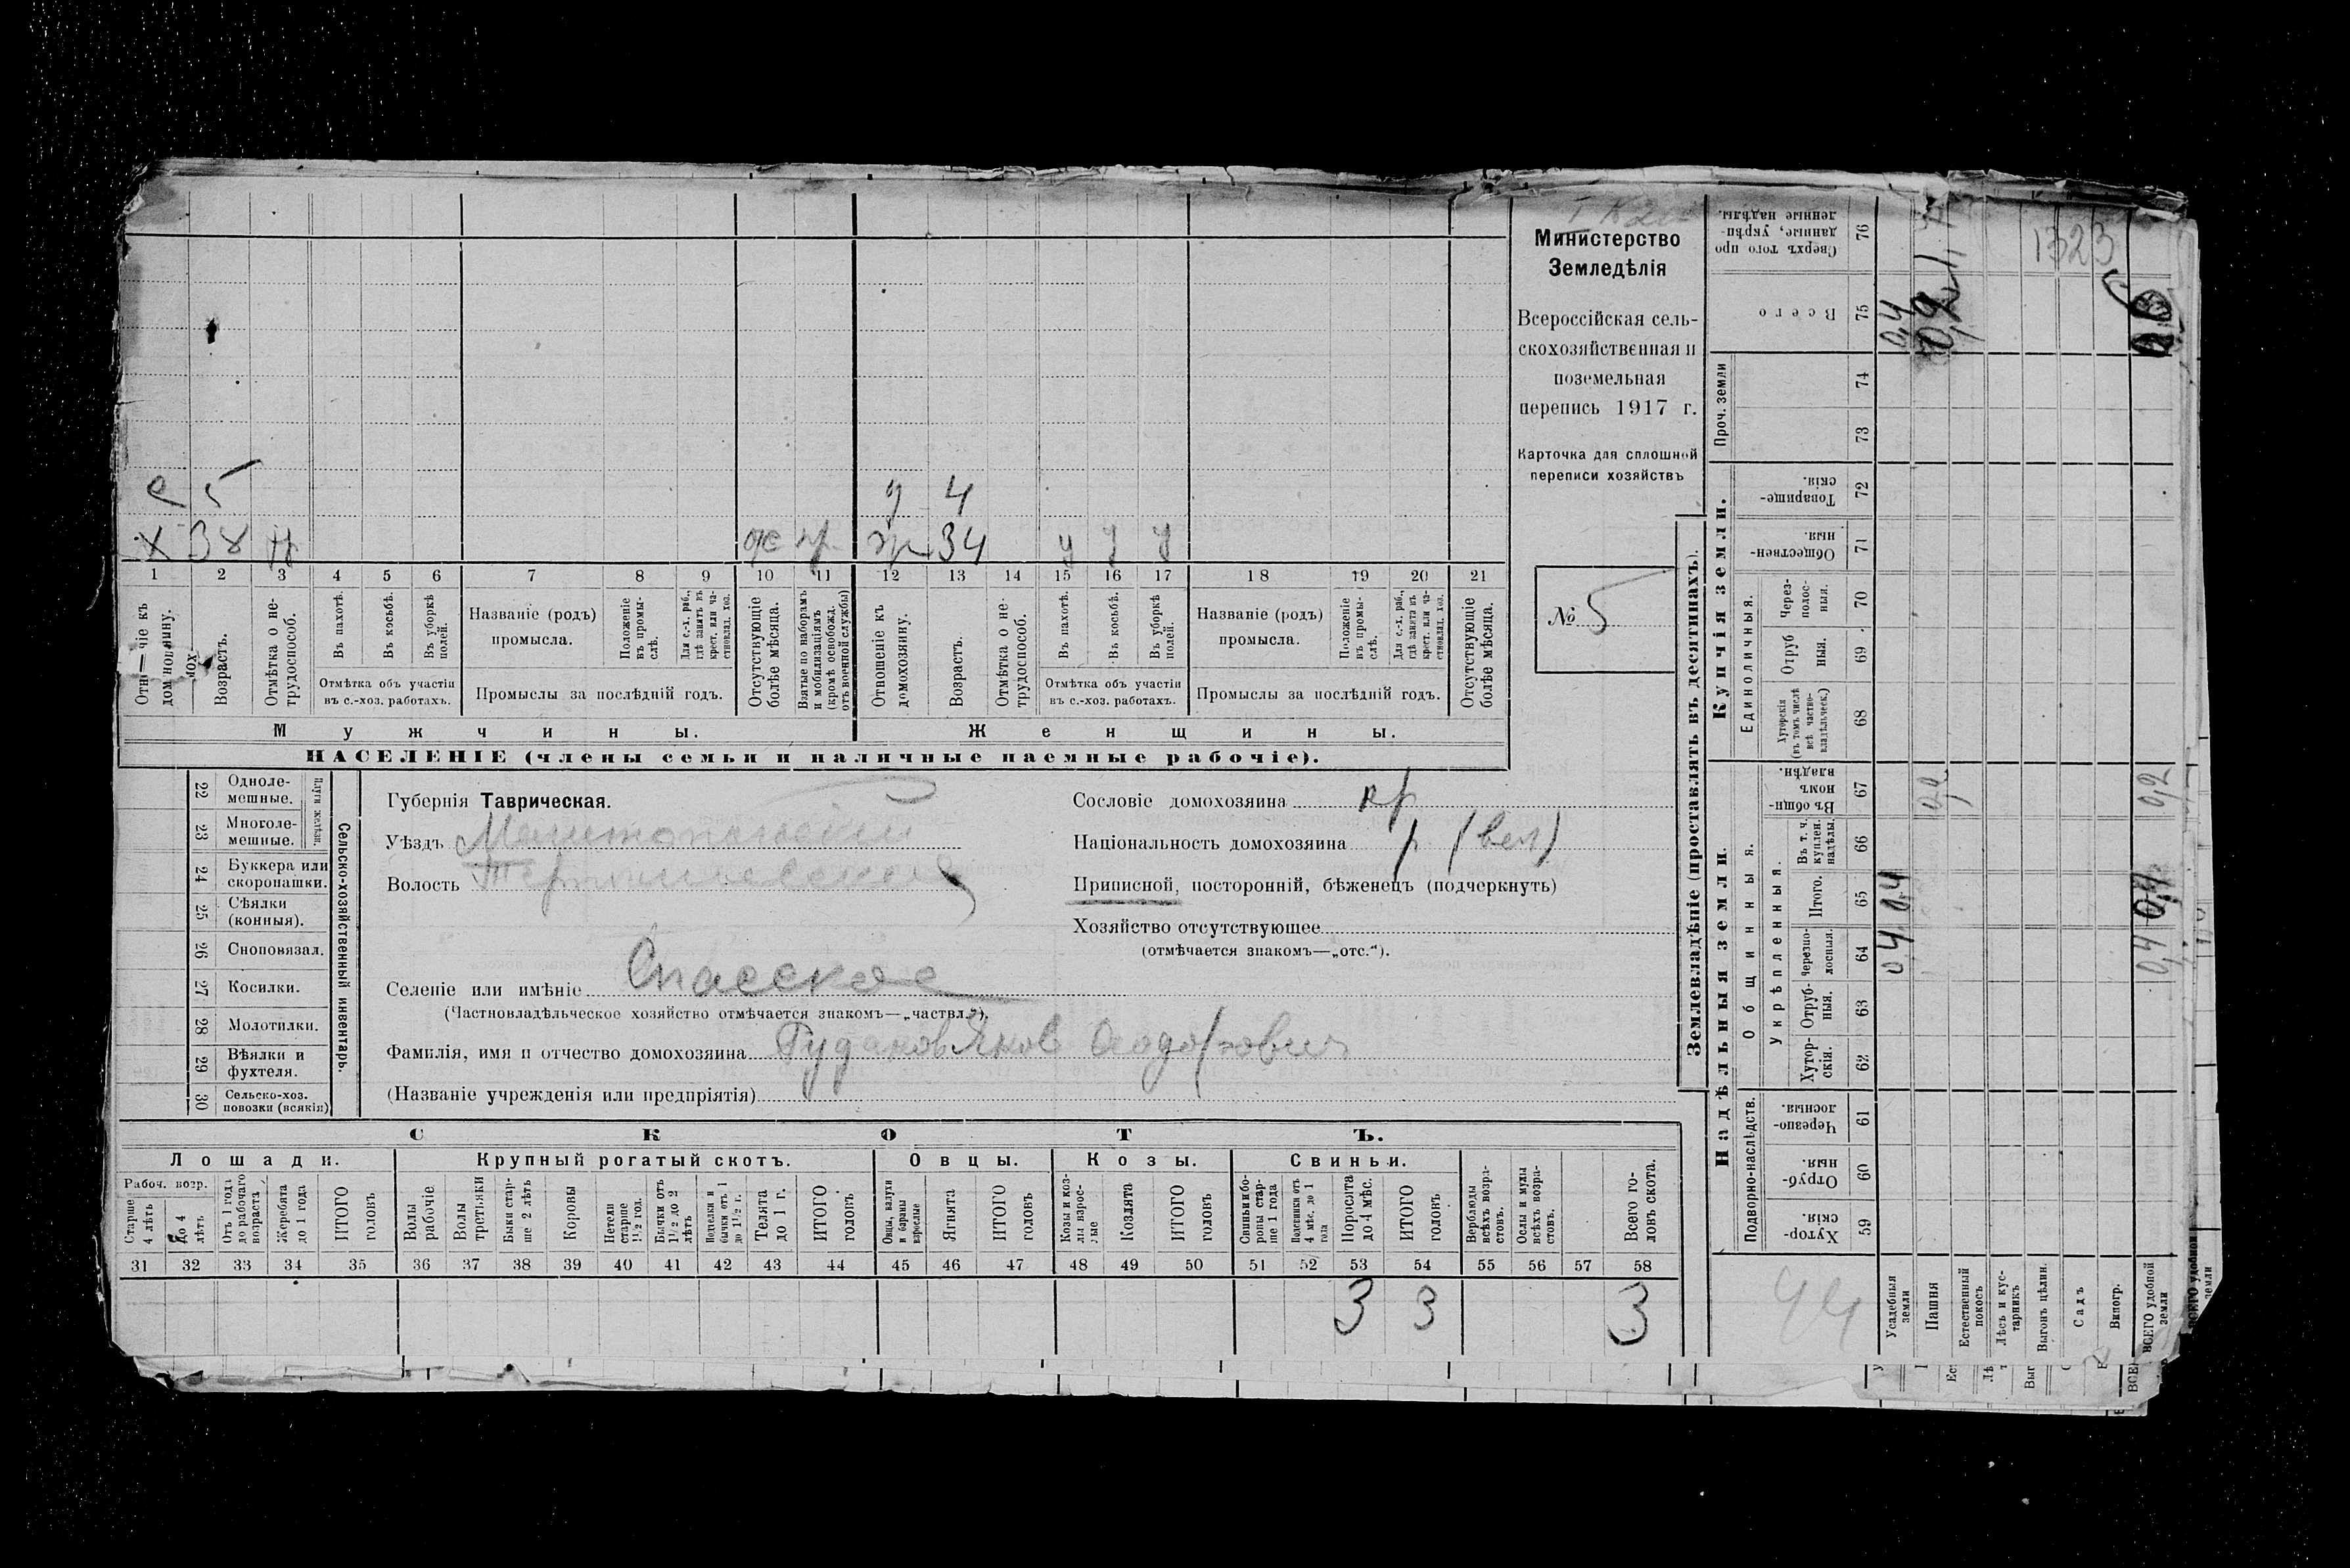 1323
е 5 д 4
х 38 н пр ж 34 у у у
1 2 3 4 5 6 7 8 9 10 11 12 13 14 15 16 17 18 19 20 21
Возрастъ.
Отмѣтка о не-
трудоспособ.
Въ пахотѣ.
Въ косьбѣ.
Въ уборкѣ
полей.
Отмѣтка объ участіи
въ с.-хоз. работахъ.
Названіе (родъ)
промысла.
Положеніе
въ промы-
слѣ.
Для с.-х. раб.,
гдѣ занятъ въ
крест. или ча-
стновлад. хоз.
Промыслы за послѣдній годъ.
Отсутствующіе
болѣе мѣсяца.
Взятые по наборамъ
и мобилизаціямъ
(кромѣ освобожд.
отъ военной службы)
Отношеніе къ
домохозяину.
Возрастъ.
Отмѣтка о не-
трудоспособ.
Въ пахотѣ.
Въ косьбѣ.
Въ уборкѣ
полей.
Отмѣтка объ участіи
въ с.-хоз. работахъ.
Названіе (родъ)
промысла.
Положеніе
въ промы-
слѣ.
Для с.-х. раб.,
гдѣ занятъ въ
крест. или ча-
стновлад. хоз.
Промыслы за послѣдній годъ.
Отсутствующіе
болѣе мѣсяца.
Мужчины.
Женщины.
НАСЕЛЕНІЕ (члены семьи и наличные наемные рабочіе).
Министерство
Земледѣлія
Всероссійская сель-
скохозяйственная и
поземельная
перепись 1917 г.
Карточка для сплошной
переписи хозяйствъ
№ 5
22 Одноле-
мешные.
23 Многоле-
мешные.
Плуги желѣзн.
24 Буккера или
скоропашки.
25 Сѣялки
(конныя).
26 Сноповязал.
27 Косилки.
28 Молотилки.
29 Вѣялки и
фухтеля.
30 Сельско-хоз.
повозки (всякія)
Сельско-хозяйственный инвентарь.
Губернія Таврическая.
Уѣздъ Мелитопольскій
Волость
Селеніе или имѣніе Спасское
(Частновладѣльческое хозяйство отмѣчается знакомъ—„частвл.“).
Фамилія, имя и отчество домохозяина Рудаков Яков Феодорович
(Названіе учрежденія или предпріятія)
Сословіе домохозяина кр
Національность домохозяина р. (вел)
Приписной, посторонній, бѣженецъ (подчеркнуть)
Хозяйство отсутствующее
(отмѣчается знакомъ—„отс.“).
СКОТЪ.
Лошади.
Рабоч. возр.
Старше
4 лѣтъ
До 4
лѣтъ
Отъ 1 года
до рабочаго
возраста
Жеребята
до 1 года
ИТОГО
головъ
Крупный рогатый скотъ.
Волы
рабочіе
Волы
третьяки
Быки стар-
ше 2 лѣтъ
Коровы
Нетели
старше
1½ год.
Бычки отъ
1½ до 2
лѣтъ
Подтелки и
бычки отъ 1
до 1½ г.
Телята
до 1 г.
ИТОГО
головъ
Овцы.
Овцы, валухи
и бараны
взрослые
Ягнята
ИТОГО
головъ
Козы.
Козы и коз-
лы взрос-
лые
Козлята
ИТОГО
головъ
Свиньи.
Свиньи и бо-
ровы стар-
ше 1 года
Подсвинки отъ
4 мѣс. до 1
года
Поросята
до 4 мѣс.
ИТОГО
головъ
Верблюды
всѣхъ возра-
стовъ.
Ослы и мулы
всѣхъ возра-
стовъ.
Всего го-
ловъ скота.
31 32 33 34 35 36 37 38 39 40 41 42 43 44 45 46 47 48 49 50 51 52 53 54 55 56 57 58
3 3 3
Землевладѣніе (проставлять въ десятинахъ).
Надѣльныя земли.
Подворно-наслѣдств.
Хутор-
скія. 59
Отруб-
ныя. 60
Черезпо-
лосныя. 61
Общинныя.
Укрѣпленныя.
Хутор-
скія. 62
Отруб-
ныя. 63
Черезпо-
лосныя. 64
Итого. 65
Въ т. ч.
куплен.
надѣлы. 66
Въ общин-
номъ
владѣн. 67
Купчія земли.
Единоличныя.
Хуторскія
(въ томъ числѣ
всѣ частно-
владѣльческ.) 68
Отруб
ныя. 69
Через-
полос-
ныя. 70
Обществен-
ныя. 71
Товарище-
скія. 72
Проч. земли
73
74
Всего 75
Сверхъ того про
данные, укрѣп-
ленные надѣлы. 76
44
Усадебныя
земли
0,4 0,4 0,4
Пашня
0,2
Естественный
покосъ
Лѣсъ и кус-
тарникъ
Выгонъ цѣлин.
Садъ
Виногр.
ВСЕГО удобной
земли
0,4 0,4 0,2